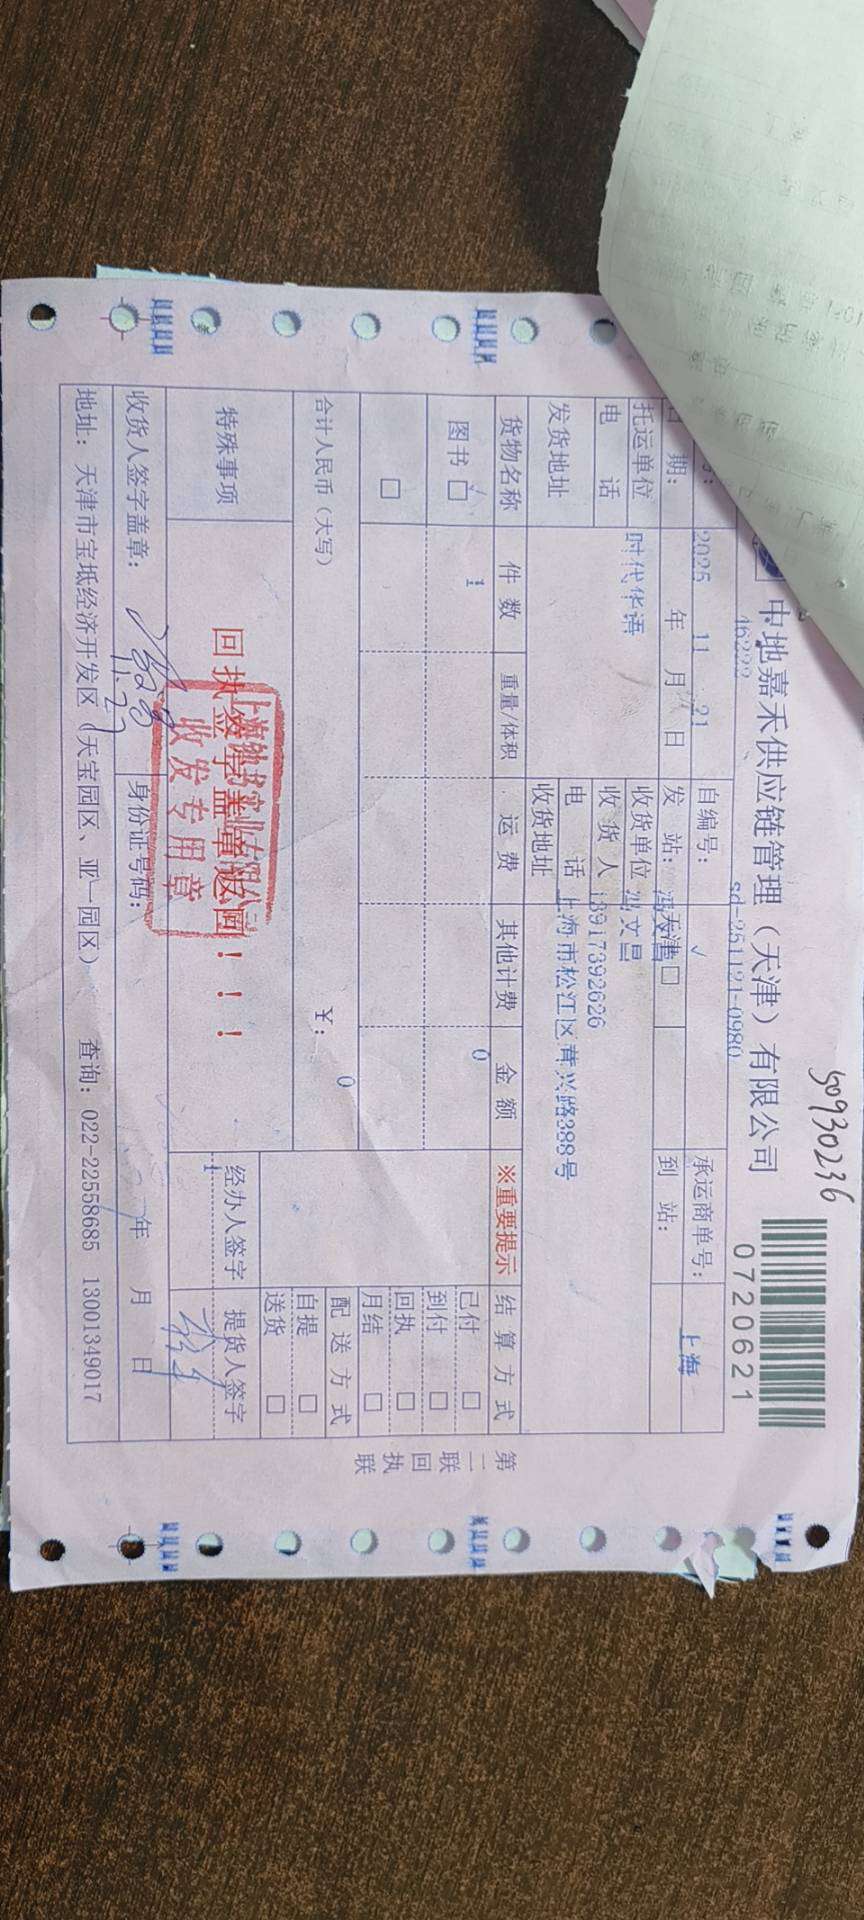 50930236
中地嘉禾供应链管理（天津）有限公司
0720621
16222
sd-251121-0980
号：
自编号：
承运商单号：
日 期：
2025 年 11 月 21 日
发 站：
天津
√
到 站：
上海
托运单位
时代华语
收货单位
冯文昌
电 话
收 货 人
冯文昌
电 话
13917392626
发货地址
收货地址
上海市松江区莘兴路388号
货物名称
件 数
重量/体积
运 费
其他计费
金 额
※重要提示
结 算 方 式
图书
1
0
已付
到付
回执
月结
合计人民币（大写）
￥：
0
配 送 方 式
自提
送货
特殊事项
回执签字盖章返回！！！
收发专用章
经办人签字
提货人签字
1
收货人签字盖章：
11.27
身份证号码：
年 月 日
地址： 天津市宝坻经济开发区（天宝园区、亚一园区） 查询：022-22558685 13001349017
第二联 回执联